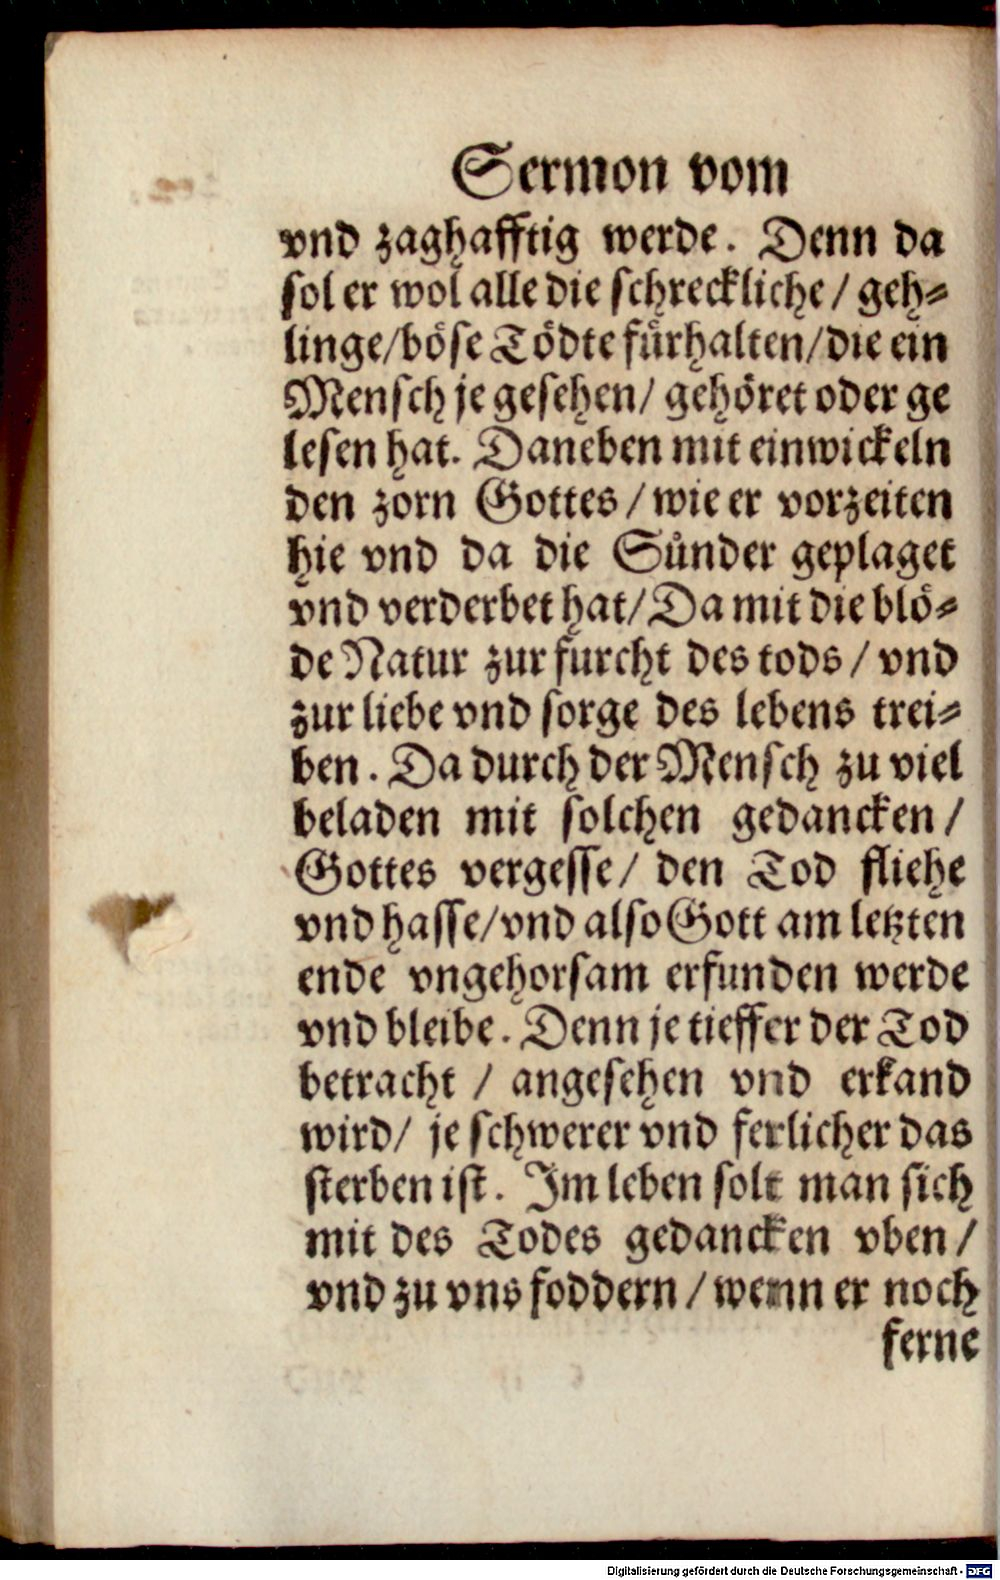 Sermon vom
vnd zaghafftig werde. Denn da
sol er wol alle die schreckliche / geh⸗
linge/böse Tödte fürhalten/die ein
Mensch je gesehen/ gehöret oder ge
lesen hat. Daneben mit einwickeln
den zorn Gottes / wie er vorzeiten
hie vnd da die Sünder geplaget
vnd verderbet hat/Da mit die blö⸗
de Natur zur furcht des tods / vnd
zur liebe vnd sorge des lebens trei⸗
ben. Da durch der Mensch zu viel
beladen mit solchen gedancken /
Gottes vergesse/ den Tod fliehe
vnd hasse/vnd also Gott am letzten
ende vngehorsam erfunden werde
vnd bleibe. Denn je tieffer der Tod
betracht / angesehen vnd erkand
wird/ je schwerer vnd ferlicher das
sterben ist. Im leben solt man sich
mit des Todes gedancken vben /
vnd zu vns foddern / wenn er noch
ferne
Digitalisierung gefördert durch die Deutsche Forschungsgemeinschaft - DFG